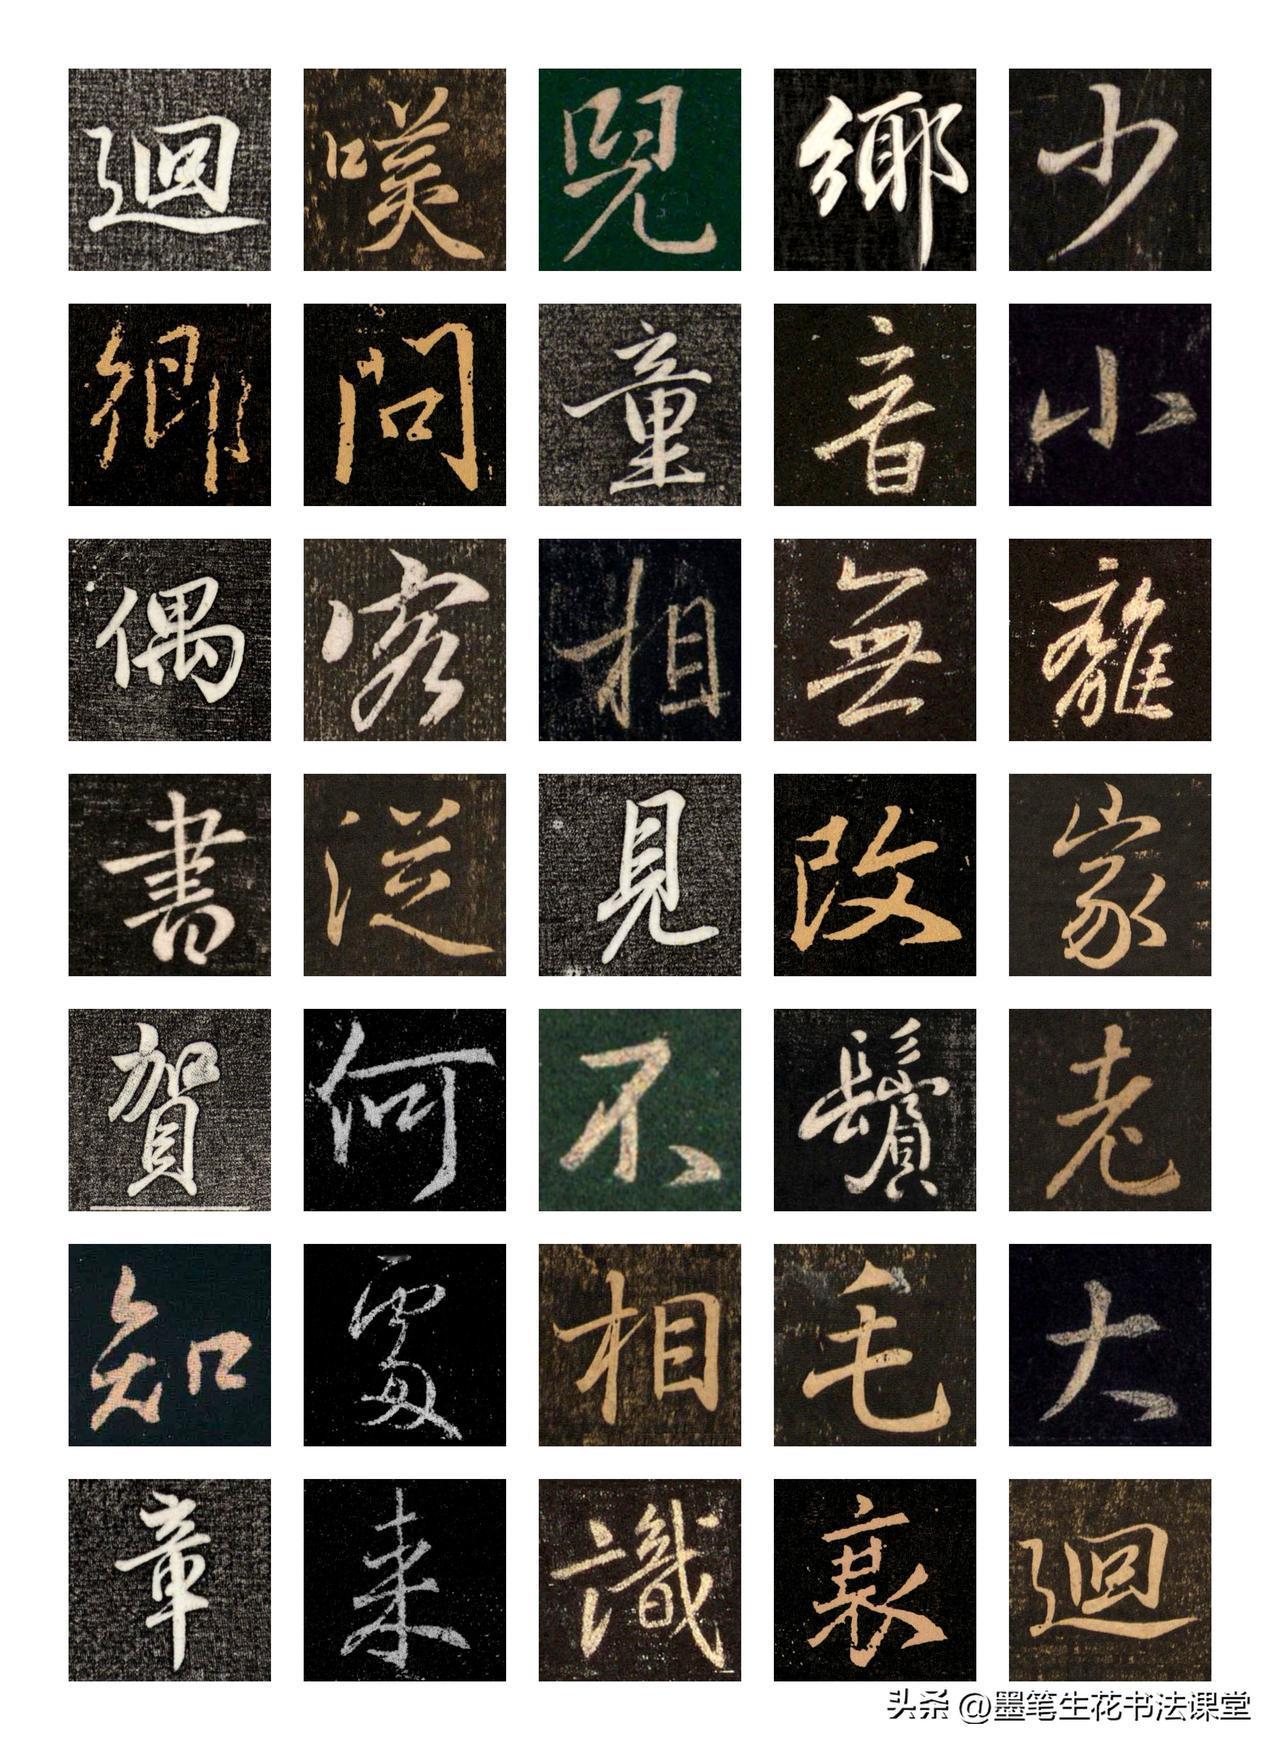 少小離家老大迴
鄉音無改鬢毛衰
兒童相見不相識
咲問客從何處來
迴鄉偶書賀知章
头条 @墨笔生花书法课堂